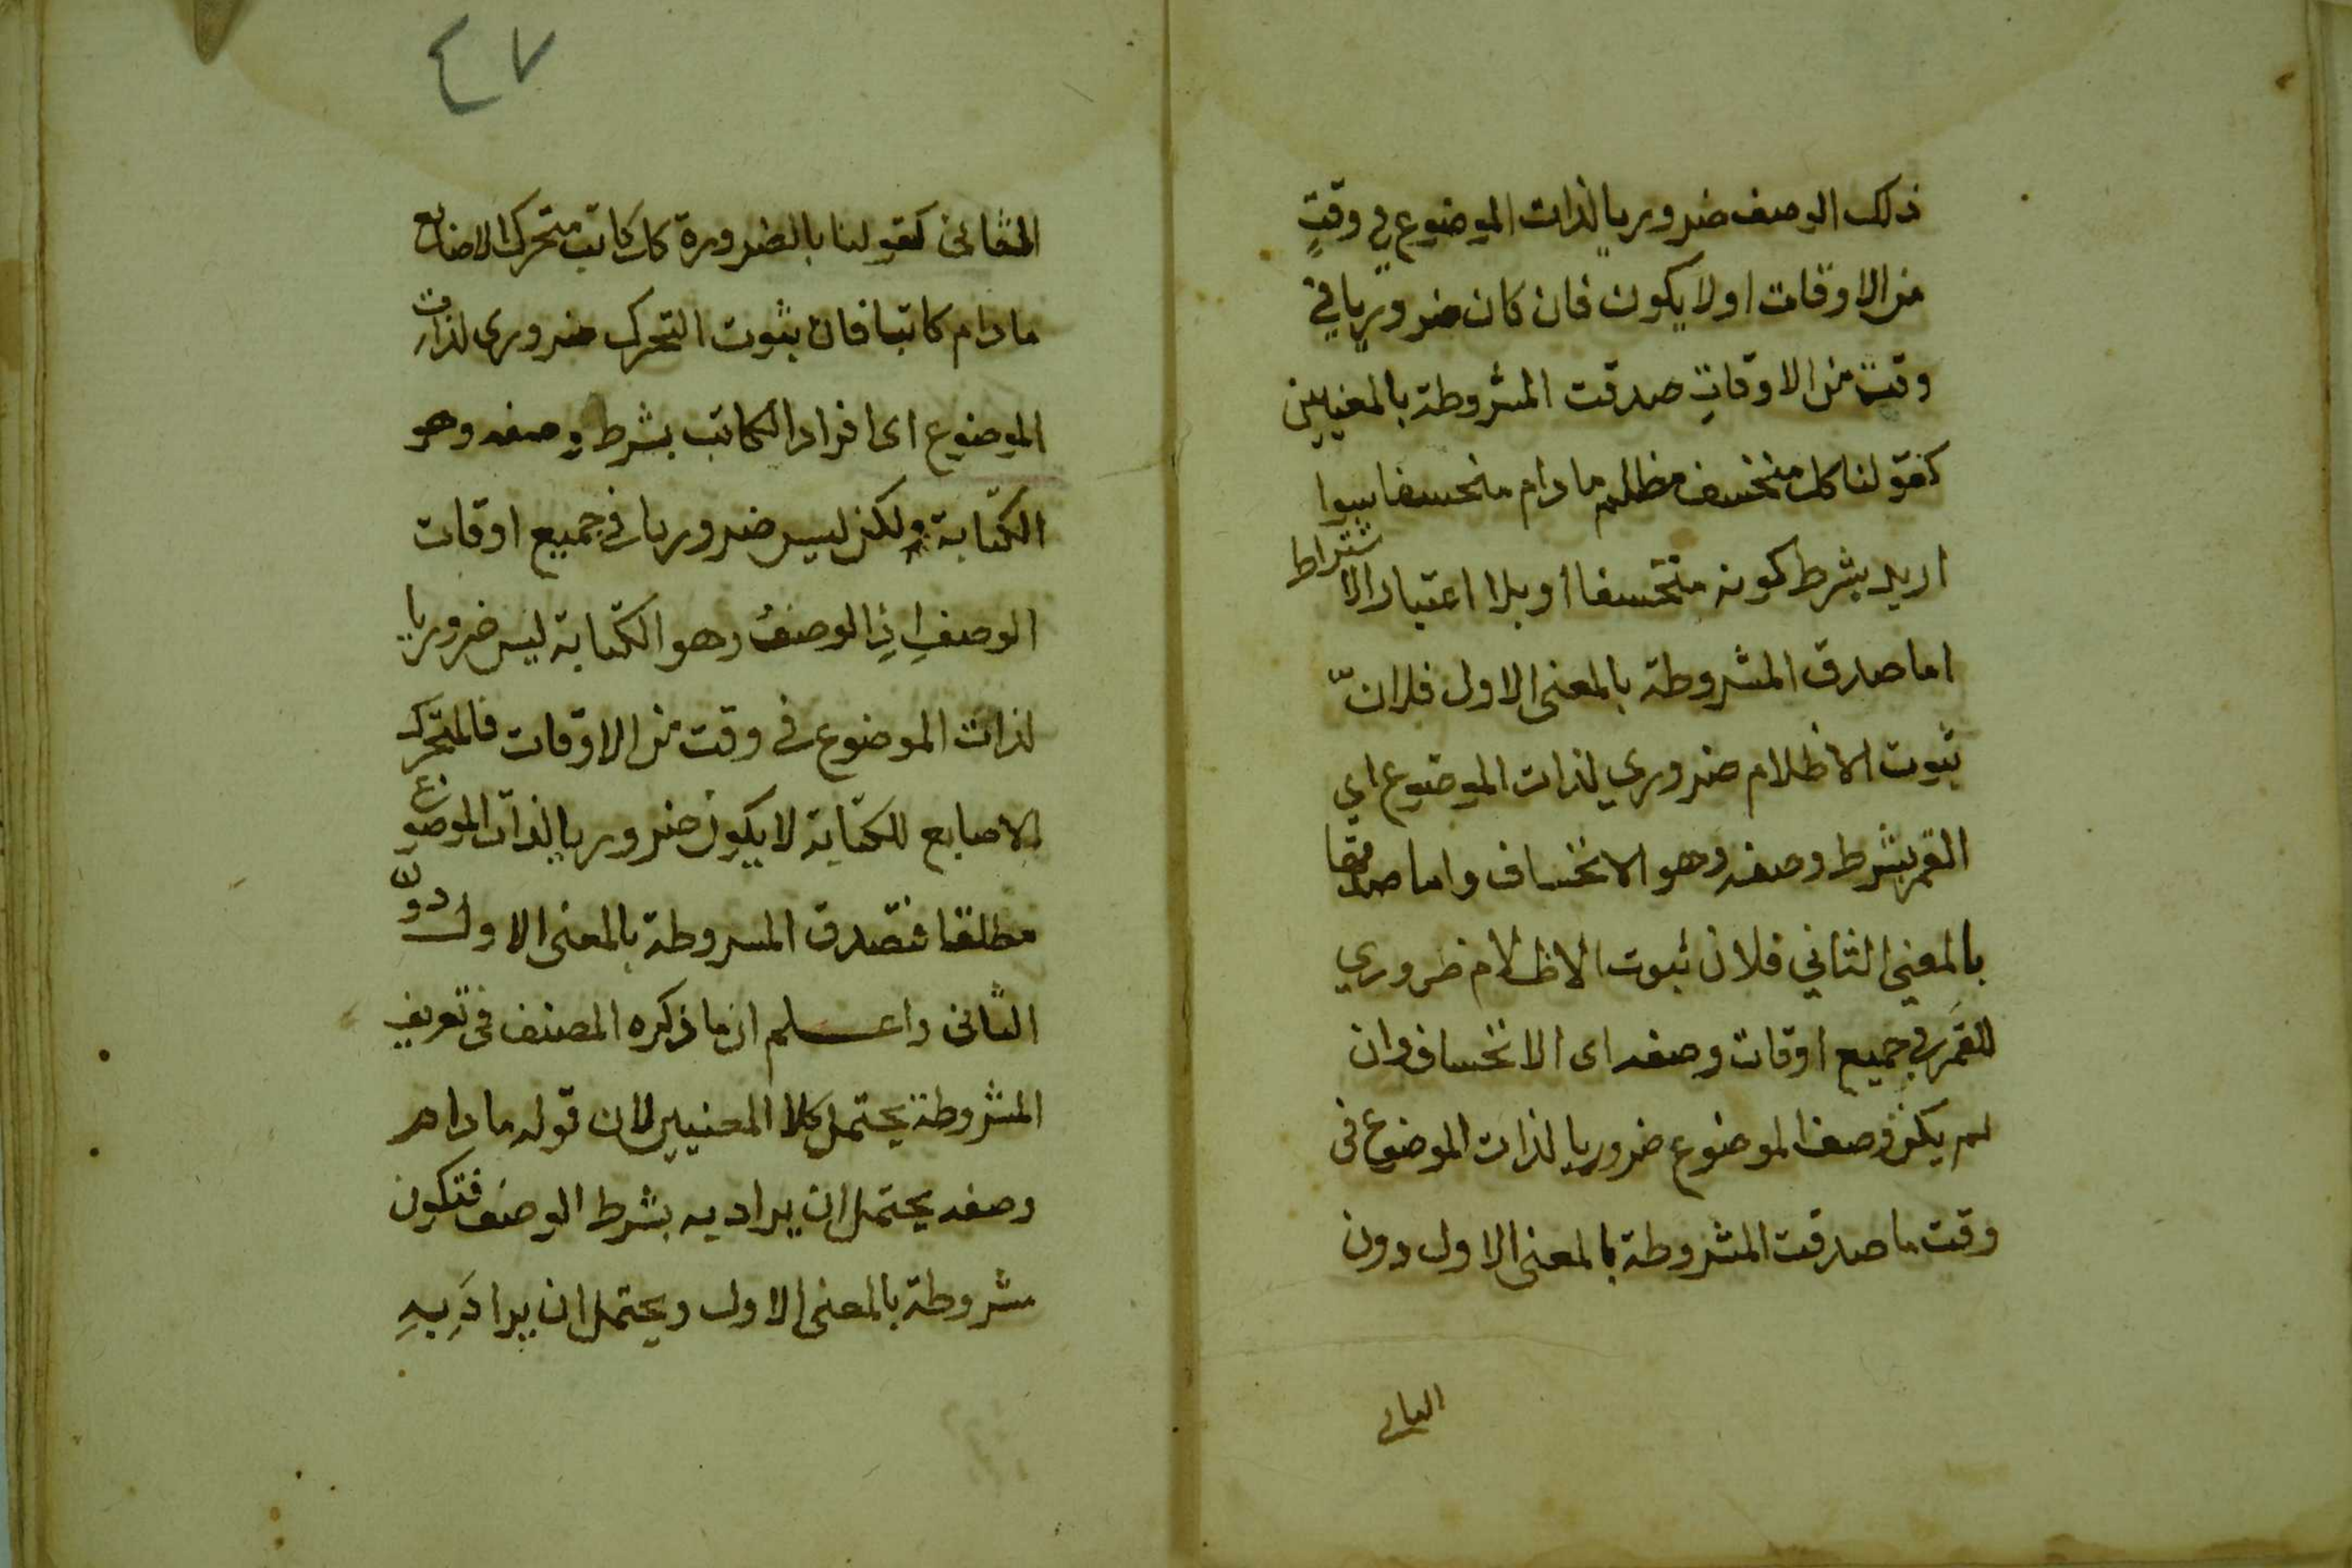 ذلك الوصف ضروريا لذات الموضوع في وقتٍ
من الاوقات اولا يكون فان كان ضروريا في
وقت من الاوقات صدقت المشروطة بالمعنيين
كقولنا كل منخسف مظلم مادام منخسفا سوا
اريد بشرط كونه منخسفا او بلا اعتبار الاشتراط
اما صدق المشروطة بالمعنى الاول فلانّ
ثبوت الاظلام ضروري لذات الموضوع اي
القمر بشرط وصفه وهو الانخساف واما صدقها
بالمعنى الثاني فلان ثبوت الاظلام ضروري
للقمر في جميع اوقات وصفه اى الانخساف وان
لم يكن وصف الموضوع ضروريا لذات الموضوع فى
وقت ما صدقت المشروطة بالمعنى الاول دون
الثانى
٤٧
الثانى كقولنا بالضرورة كل كاتب متحرك الاصابع
مادام كاتبا فان ثبوت التحرك ضرورى لذات
الموضوع اى افراد الكاتب بشرط وصفه وهو
الكتابة ولكن ليس ضروريا فى جميع اوقات
الوصف اذ الوصف وهو الكتابة ليس ضروريا
لذات الموضوع فى وقت من الاوقات فالمتحرك
الاصابع للكتابة لا يكون ضروريا لذات الموضوع
مطلقا فتصدق المسروطة بالمعنى الاول دون
الثانى واعلم ان ما ذكره المصنف فى تعريف
المشروطة يحتمل كلا المعنيين لان قوله مادام
وصفه يحتمل ان يراد به بشرط الوصف فتكون
مشروطة بالمعنى الاول ويحتمل ان يرادَ بهِ